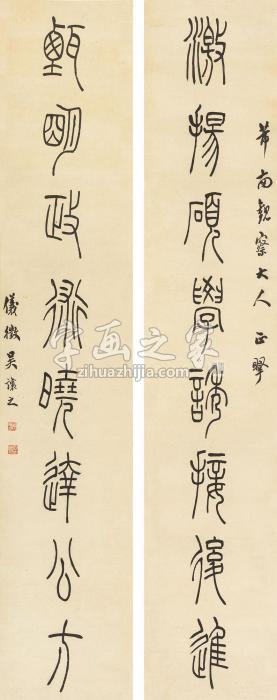 芾南觀察大人正
激揚碩學誘接後進
甄明政術曉達公方
儀徵吳讓之
字画之家
www.zihuazhijia.com